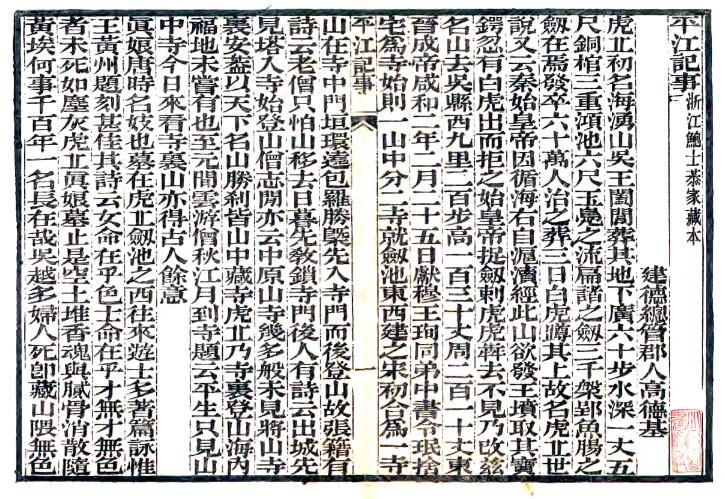 平江記事 浙江鮑士恭家藏本
建德總管郡人高德基
虎丠初名海湧山吳王闔閭葬其地下廣六十步水深一丈五
尺銅棺三重澒池六尺玉鳧之流扁諸之劔三千槃郢魚腸之
劔在焉發卒六十萬人治之葬三日白虎蹲其上故名虎丠世
說又云秦始皇帝因循海右自滬瀆經此山欲發王墳取其寶
鍔忽有白虎出而拒之始皇帝捉劔刺虎虎奔去不見乃改茲
名山去吳縣西九里二百步高一百三十丈周二百一十丈東
晉成帝咸和二年二月二十五日獻穆王珣同弟中書令珉捨
宅爲寺始則一山中分二寺就劔池東西建之宋初合爲一寺
平江記事 一
山在寺中門垣環遶包羅勝槩先入寺門而後登山故張籍有
詩云老僧只怕山移去日暮先敎鎖寺門後人有詩云出城先
見塔入寺始登山僧志閒亦云中原山寺幾多般未見將山寺
裏安葢以天下名山勝刹皆山中藏寺虎丠乃寺裏登山海內
福地未嘗有也至元間雲游僧秋江月到寺題云平生只見山
中寺今日來看寺裏山亦得古人餘意
眞娘唐時名妓也墓在虎丠劔池之西往來遊士多著篇詠惟
王黃州題刻甚佳其詩云女命在乎色士命在乎才無才無色
者未死如塵灰虎丠眞娘墓止是空土堆香魂與膩骨消散隨
黃埃何事千百年一名長在哉吳越多婦人死卽藏山隈無色